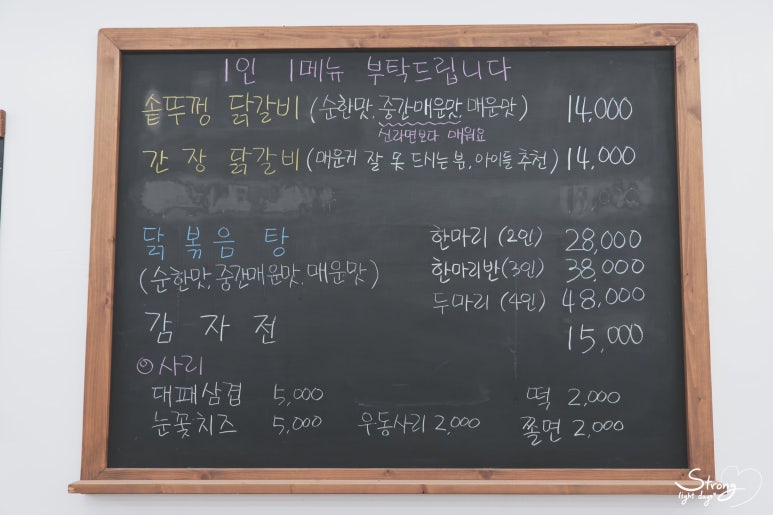 1인 1메뉴 부탁드립니다
솥뚜껑 닭갈비 (순한맛, 중간매운맛, 매운맛) 14,000
신라면보다 매워요
간장 닭갈비 (매운거 잘 못 드시는 분, 아이들 추천) 14,000
닭볶음탕 한마리 (2인) 28,000
(순한맛, 중간매운맛, 매운맛) 한마리반(3인) 38,000
두마리 (4인) 48,000
감자전 15,000
사리
대패삼겹 5,000 떡 2,000
눈꽃치즈 5,000 우동사리 2,000 쫄면 2,000
Strong
light days